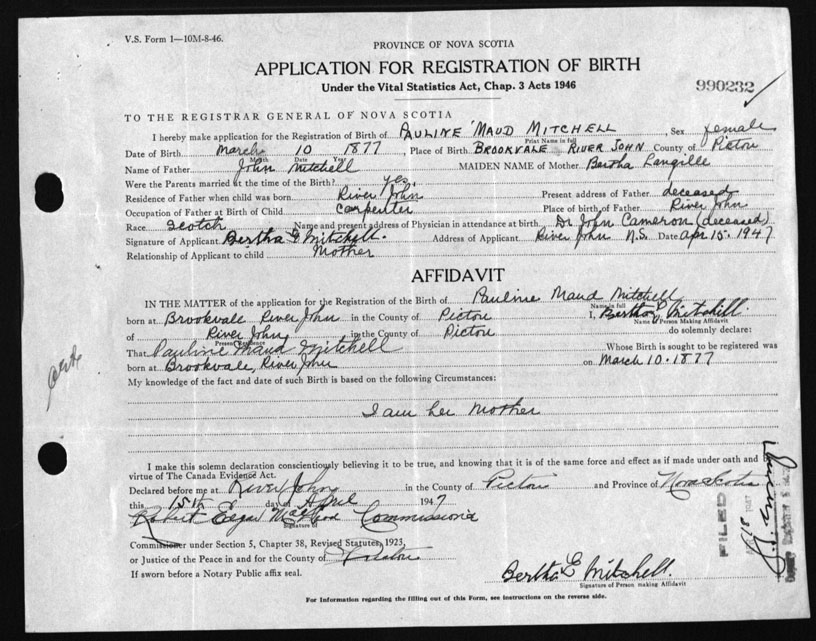 V.S. Form 1—10M-8-46.
PROVINCE OF NOVA SCOTIA
APPLICATION FOR REGISTRATION OF BIRTH
Under the Vital Statistics Act, Chap. 3 Acts 1946
990232
TO THE REGISTRAR GENERAL OF NOVA SCOTIA
I hereby make application for the Registration of Birth of PAULINE MAUD MITCHELL, Sex female
Print Name in full
Date of Birth March 10 1877, Place of Birth BROOKVALE RIVER JOHN County of Pictou
Month Date Year
Name of Father John Mitchell MAIDEN NAME of Mother Bertha Langille
Were the Parents married at the time of the Birth? yes
Residence of Father when child was born River John Present address of Father deceased
Occupation of Father at Birth of Child Carpenter Place of birth of Father River John
Race Scotch Name and present address of Physician in attendance at birth Dr John Cameron (deceased)
Signature of Applicant Bertha E Mitchell. Address of Applicant River John N.S. Date Apr 15. 1947
Relationship of Applicant to child Mother
AFFIDAVIT
IN THE MATTER of the application for the Registration of the Birth of Pauline Maud Mitchell
Name in full
born at Brookvale River John in the County of Pictou I, Bertha E Mitchell
Name of Person Making Affidavit
of River John in the County of Pictou do solemnly declare:
Present Residence
That Pauline Maud Mitchell Whose Birth is sought to be registered was
born at Brookvale, River John on March 10. 1877
My knowledge of the fact and date of such Birth is based on the following Circumstances:
I am her Mother
I make this solemn declaration conscientiously believing it to be true, and knowing that it is of the same force and effect as if made under oath and by
virtue of The Canada Evidence Act.
Declared before me at River John in the County of Pictou and Province of Nova Scotia
this 15th day of April 1947
Robert Edgar Commissioner
Signature of
Commissioner under Section 5, Chapter 38, Revised Statutes, 1923,
or Justice of the Peace in and for the County of Pictou
If sworn before a Notary Public affix seal.
Bertha E Mitchell.
Signature of Person making Affidavit
FILED
For Information regarding the filling out of this Form, see instructions on the reverse side.